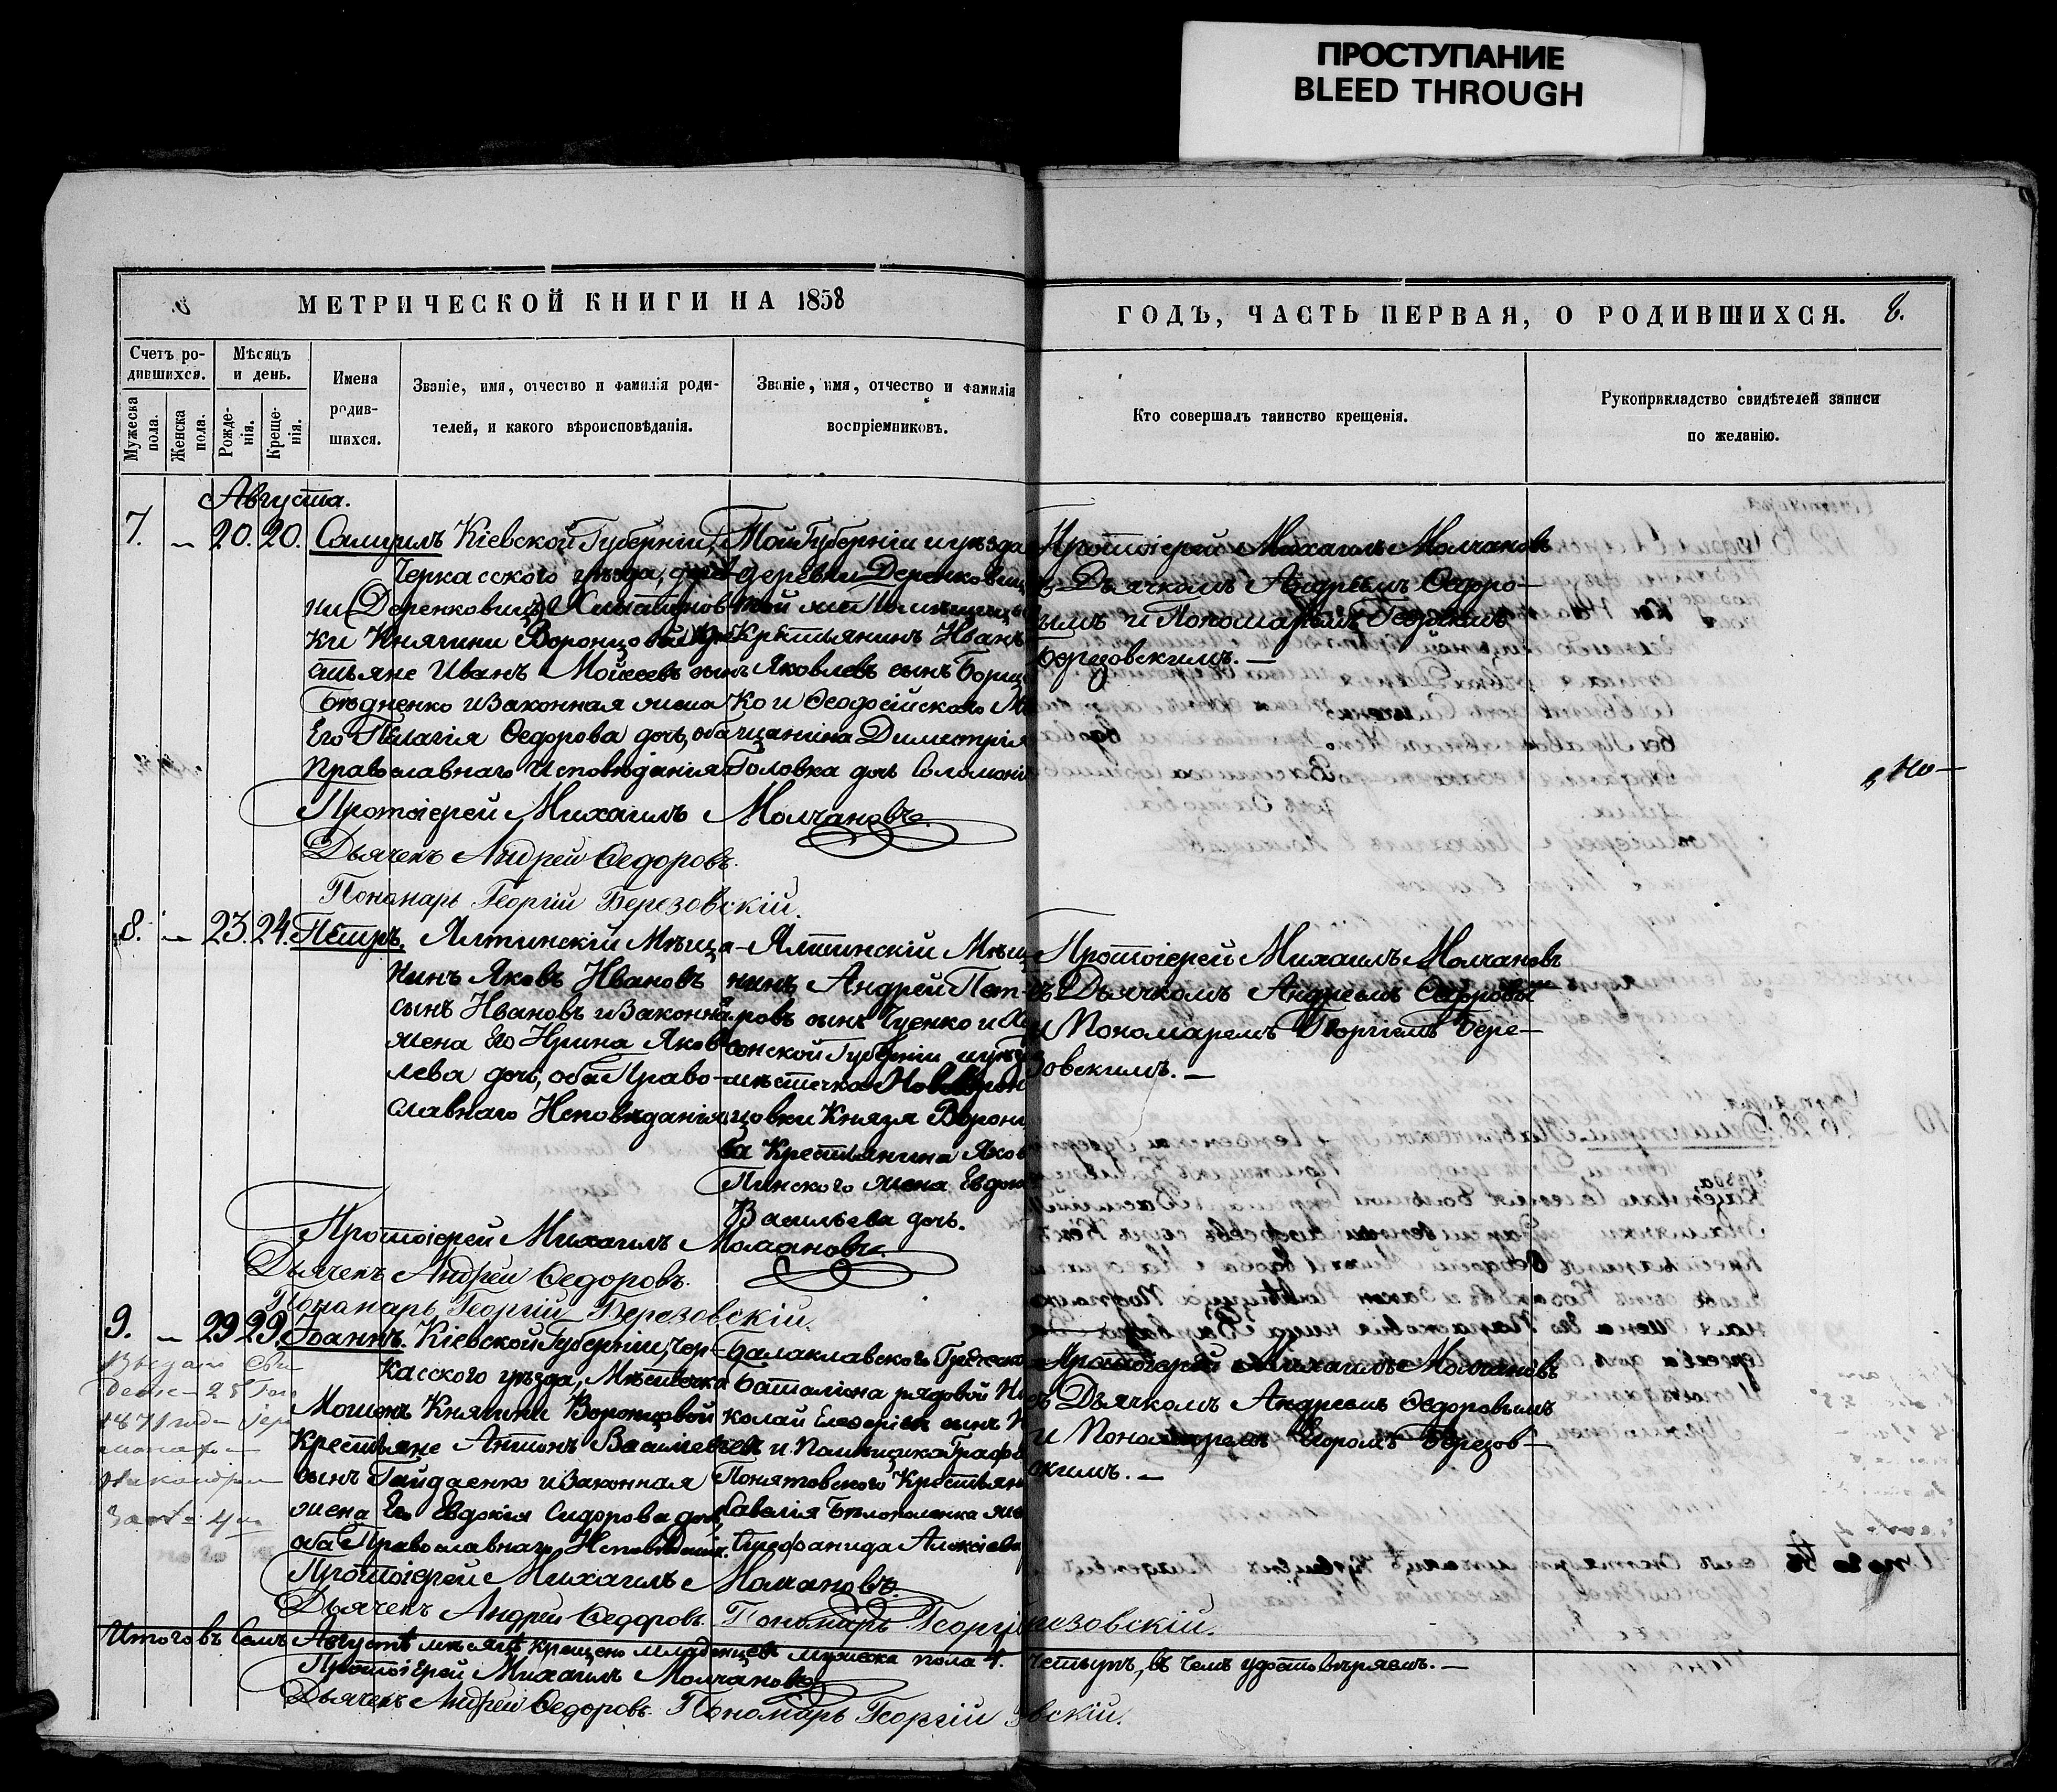 ПРОСТУПАНИЕ
BLEED THROUGH
МЕТРИЧЕСКОЙ КНИГИ НА 1858
ГОДЪ, ЧАСТЬ ПЕРВАЯ, О РОДИВШИХСЯ. 8.
Счетъ ро-
дившихся.
Мужеска
пола.
Женска
пола.
Мѣсяцъ
и день.
Рожде-
нія.
Креще-
нія.
Имена
родив-
шихся.
Званіе, имя, отчество и фамилія роди-
телей, и какого вѣроисповѣданія.
Званіе, имя, отчество и фамилія
воспріемниковъ.
Кто совершалъ таинство крещенія.
Рукоприкладство свидѣтелей записи
по желанію.
Августа.
7. – 20. 20. Самуилъ
Кіевской Губерніи,
Черкасского уѣзда, дерев-
ни Деренковицъ,
ки Княгини Воронцовой Кре-
стьяне Иванъ Мойсеевъ сынъ
Бѣдненко и Законная жена
Его Пелагія Ѳедорова дочь, оба
Православнаго Исповѣданія
Той Губерніи и уѣзда
деревни Деренковиц
той же Помѣщицы
Крестьянинъ Иванъ
Яковлевъ сынъ Борщ
ко и Ѳеодосійскаго М
щанина Димитрія
Головка дочь Соломонія
Протоіерей Михаилъ Молчановъ
съ Дьячкомъ Андреемъ Ѳедоро-
вымъ и Пономаремъ Георгіемъ
Березовскимъ. –
Протоіерей Михаилъ Молчановъ.
Дьячекъ Андрей Ѳедоровъ.
Пономарь Георгій Березовскій.
8. – 23. 24. Петръ.
Ялтинскій Мѣща-
нинъ Яковъ Ивановъ
сынъ Ивановъ и Законная
жена Его Ирина Яков-
лева дочь, оба Право-
славнаго Исповѣданія
Ялтинскій Мѣщ
нинъ Андрей Пет-
ровъ сынъ Гуенко и Хер
сонской Губерніи и уѣзда
мѣстечка Нов Ворон
цовки Князя Воронц
ва Крестьянина Яков
Пинского жена Евдок
Васильева дочь.
Протоіерей Михаилъ Молчановъ
съ Дьячкомъ Андреемъ Ѳедоровым
и Пономаремъ Георгіемъ Бере-
зовскимъ. –
Протоіерей Михаилъ Молчановъ.
Дьячекъ Андрей Ѳедоровъ.
Пономарь Георгій Березовскій.
9. – 29 29. Іоаннъ.
Кіевской Губерніи, Чер-
касского уѣзда, Мѣстечка
Мошенъ Княгини Воронцовой
Крестьяне Антонъ Васильевъ
сынъ Гайдаенко и Законная
жена Его Евдокія Сидорова дочь
оба Православнаго Исповѣданія.
Балаклавского Греческо
баталіона рядовой Ни
колай Елеѳеріев сынъ
и Помѣщика Графа
Понятовского Крестьян
Савелія Бѣлополенка же
Стефанида Алексіева
Протоіерей Михаилъ Молчановъ
съ Дьячкомъ Андреемъ Ѳедоровымъ
и Пономаремъ Егоромъ Березов-
скимъ. –
1871 года
Протоіерей Михаилъ Молчановъ.
Дьячекъ Андрей Ѳедоровъ. Пономарь Георгі резовскій.
Итого въ семъ Августѣ мѣсяцѣ крещено младенцевъ мужеска пола 4. Четыре, въ чемъ удостовѣряемъ. –
Протоіерей Михаилъ Молчановъ
Дьячекъ Андрей Ѳедоровъ. Пономарь Георгій овскій.